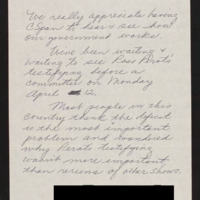 We really appreciate having
CSpan to hear & see how
our government works.
I've been waiting &
waiting to see Ross Perot's
testifying before a
committee on Monday
April 12.
Most people in this
country think the deficit
is the most important
problem and
why Perot's testifying
wasn't more important
than reruns of other shows.